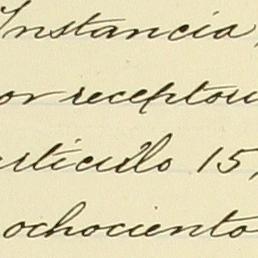 Instancia,
or receptou
articulo 15,
ochociento